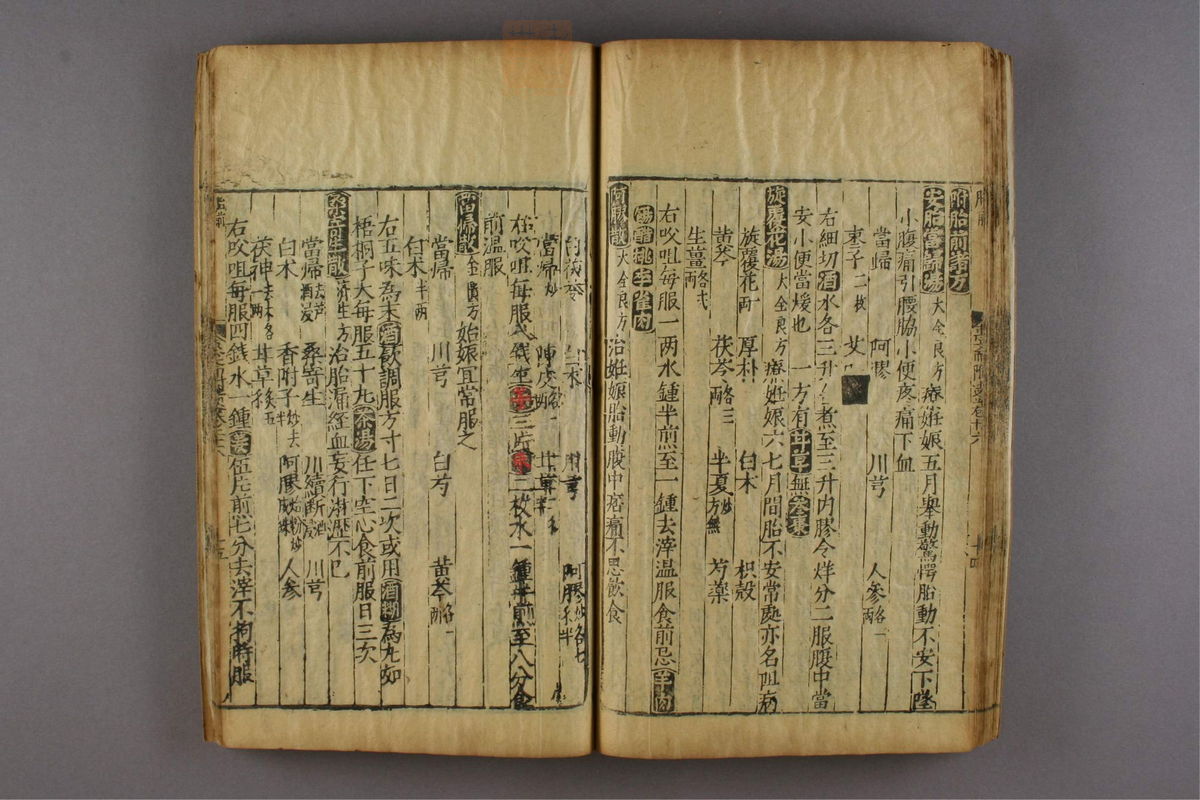 附胎前諸方
安胎當歸湯大全良方療姙娠五月舉動驚愕胎動不安下墜
小腹痛引腰脇小便疼痛下血
當歸 阿膠 川芎 人參各一兩
棗子二枚 艾
右細切酒水各三升煮至三升内膠令烊分二服腹中當
安小便當煖也 一方有甘草無參棗
旋覆花湯大全良方療姙娠六七月間胎不安常處亦名阻病
旋覆花一兩 厚朴 白术 枳殼
黄芩 茯苓各三兩 半夏炒方無 芍藥
生薑各弍兩
右㕮咀每服一两水鍾半煎至一鍾去滓温服食前忌羊肉
餳醋桃李雀肉
阿膠散大全良方治姙娠胎動腹中㽲痛不思飲食
白茯苓 白术 川芎 阿膠炒各七
當歸炒 陳皮各一兩 甘草
右㕮咀每服 錢生 三片 三枚水一鍾半煎至八分食
前温服
當歸散金匱方姙娠宜常服之
當歸 川芎 白芍 黄芩各一兩
白术半兩
右五味為末酒飲調服方寸七日二次或用酒糊為丸如
梧桐子大每服五十丸茶湯任下空心食前服日三次
桑寄生散濟生方治胎漏經血妄行淋瀝不已
當歸去芦酒浸 桑寄生 川續斷酒浸 川芎
白术 香附子炒去 阿膠 人參
茯神去木各一兩 甘草炙五
右㕮咀每服四錢水一鍾薑伍片煎 分去滓不拘時服